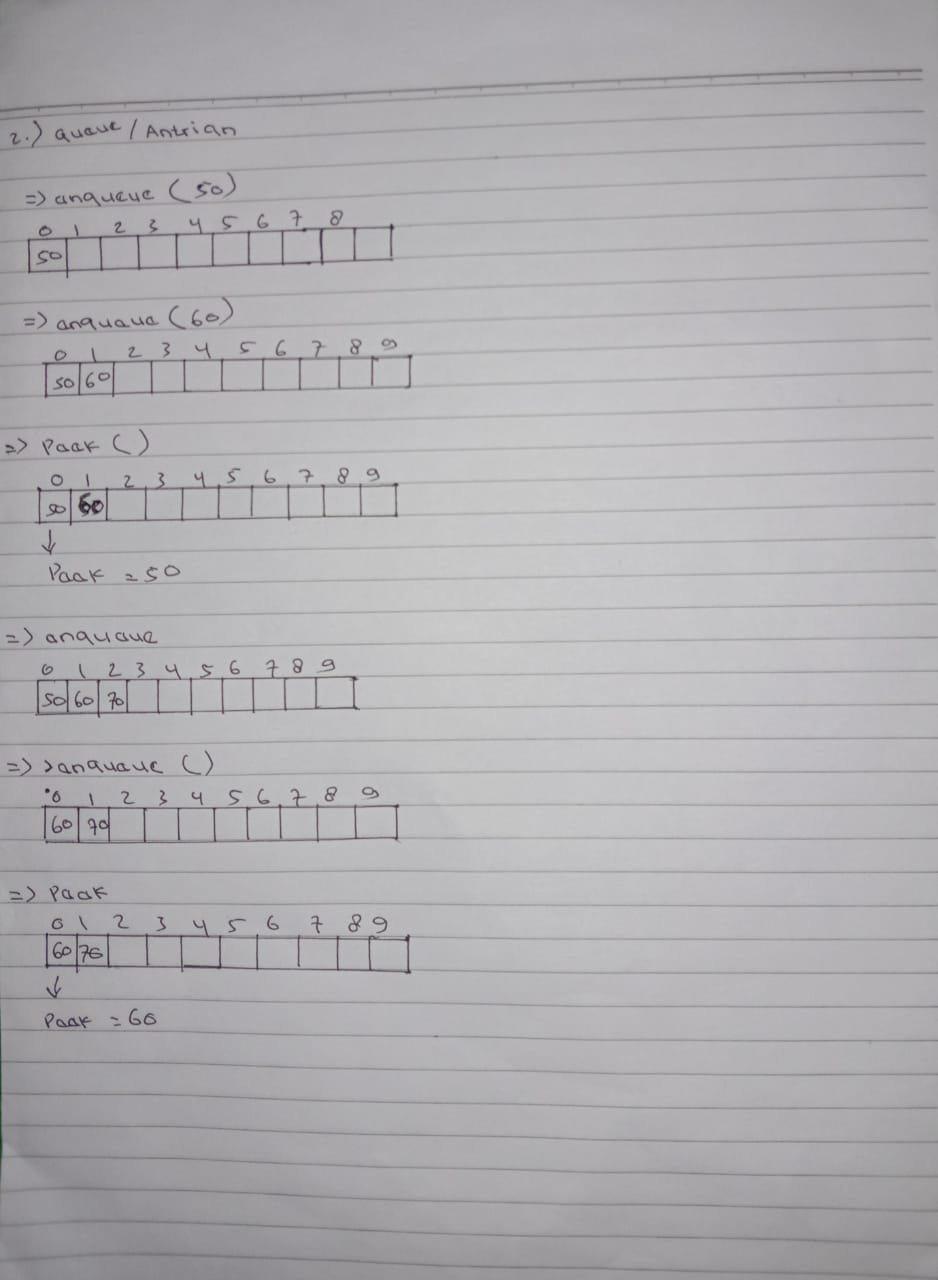 2.) Queue / Antrian
=> anqueue (50)
0 1 2 3 4 5 6 7 8
50
=> anquaua (60)
0 1 2 3 4 5 6 7 8 9
50 60
=> Paak ()
0 1 2 3 4 5 6 7 8 9
50 60
↓
Paak = 50
=> anquaue
0 1 2 3 4 5 6 7 8 9
50 60 70
=> anquaue ()
0 1 2 3 4 5 6 7 8 9
60 70
=> Paak
0 1 2 3 4 5 6 7 8 9
60 70
↓
Paak = 60